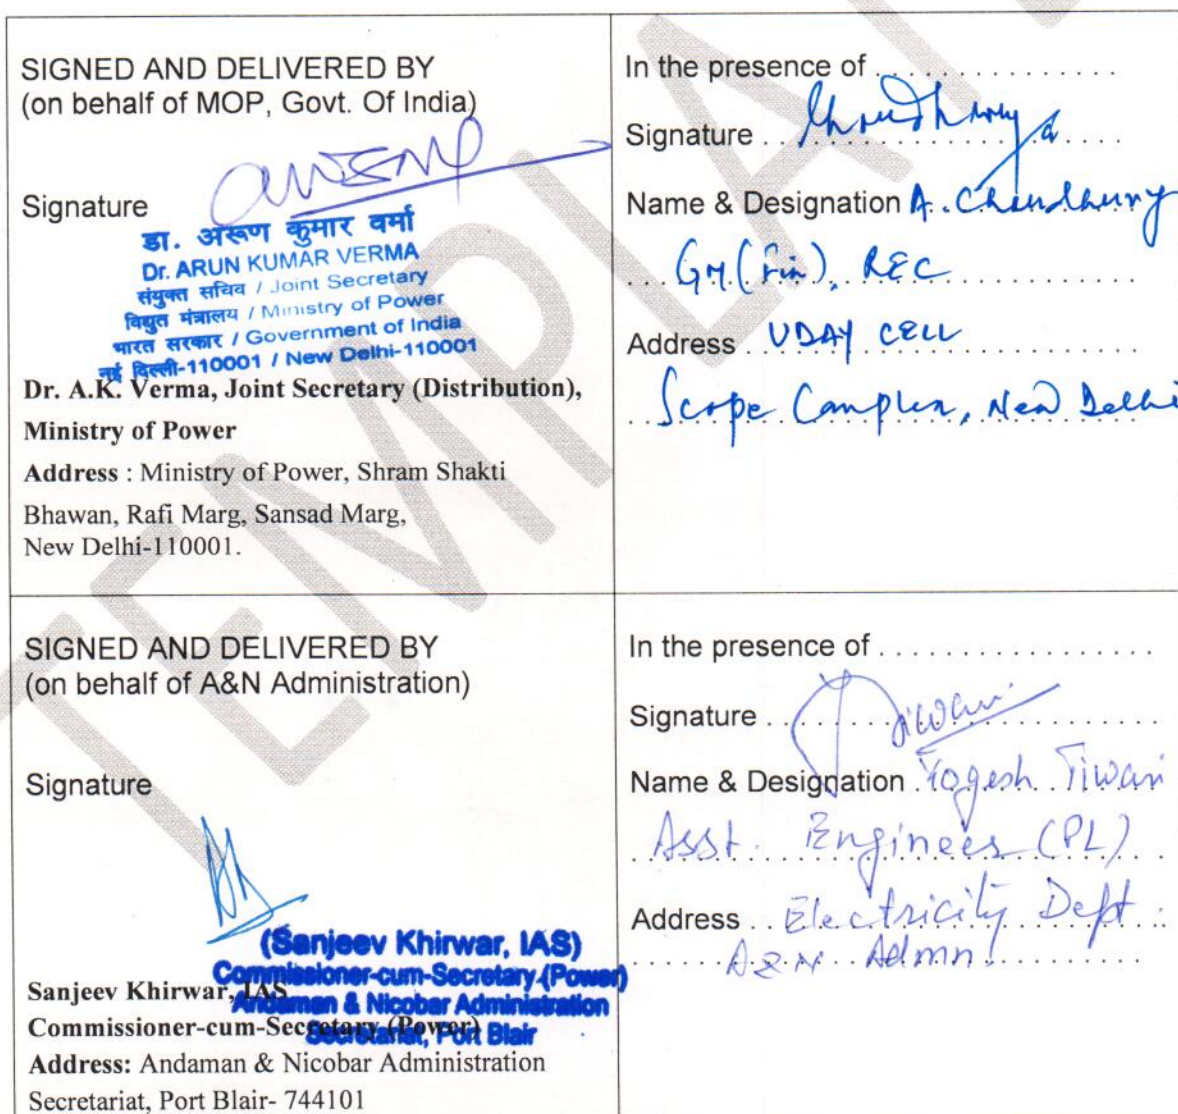 SIGNED AND DELIVERED BY
(on behalf of MOP, Govt. Of India)
Signature
डा. अरूण कुमार वर्मा
Dr. ARUN KUMAR VERMA
संयुक्त सचिव / Joint Secretary
विद्युत मंत्रालय / Ministry of Power
भारत सरकार / Government of India
नई दिल्ली-110001 / New Delhi-110001
Dr. A.K. Verma, Joint Secretary (Distribution),
Ministry of Power
Address : Ministry of Power, Shram Shakti
Bhawan, Rafi Marg, Sansad Marg,
New Delhi-110001.
In the presence of . . . . . . . . . . . . . . . .
Signature . . . . . . . . . . . . . . . . . . . .
Name & Designation A. Chaudhury
GM (Fin), REC
Address UDAY CELL
Scope Complex, New Delhi
SIGNED AND DELIVERED BY
(on behalf of A&N Administration)
Signature
(Sanjeev Khirwar, IAS)
Commissioner-cum-Secretary (Power)
Andaman & Nicobar Administration
Secretariat, Port Blair
Sanjeev Khirwar, IAS
Commissioner-cum-Secretary (Power)
Address: Andaman & Nicobar Administration
Secretariat, Port Blair- 744101
In the presence of . . . . . . . . . . . . . . . . . .
Signature . . Tiwari
Name & Designation Yogesh Tiwari
Asst. Engineer (PL)
Address Electricity Deptt.
A&N Admn.
TEMPLA